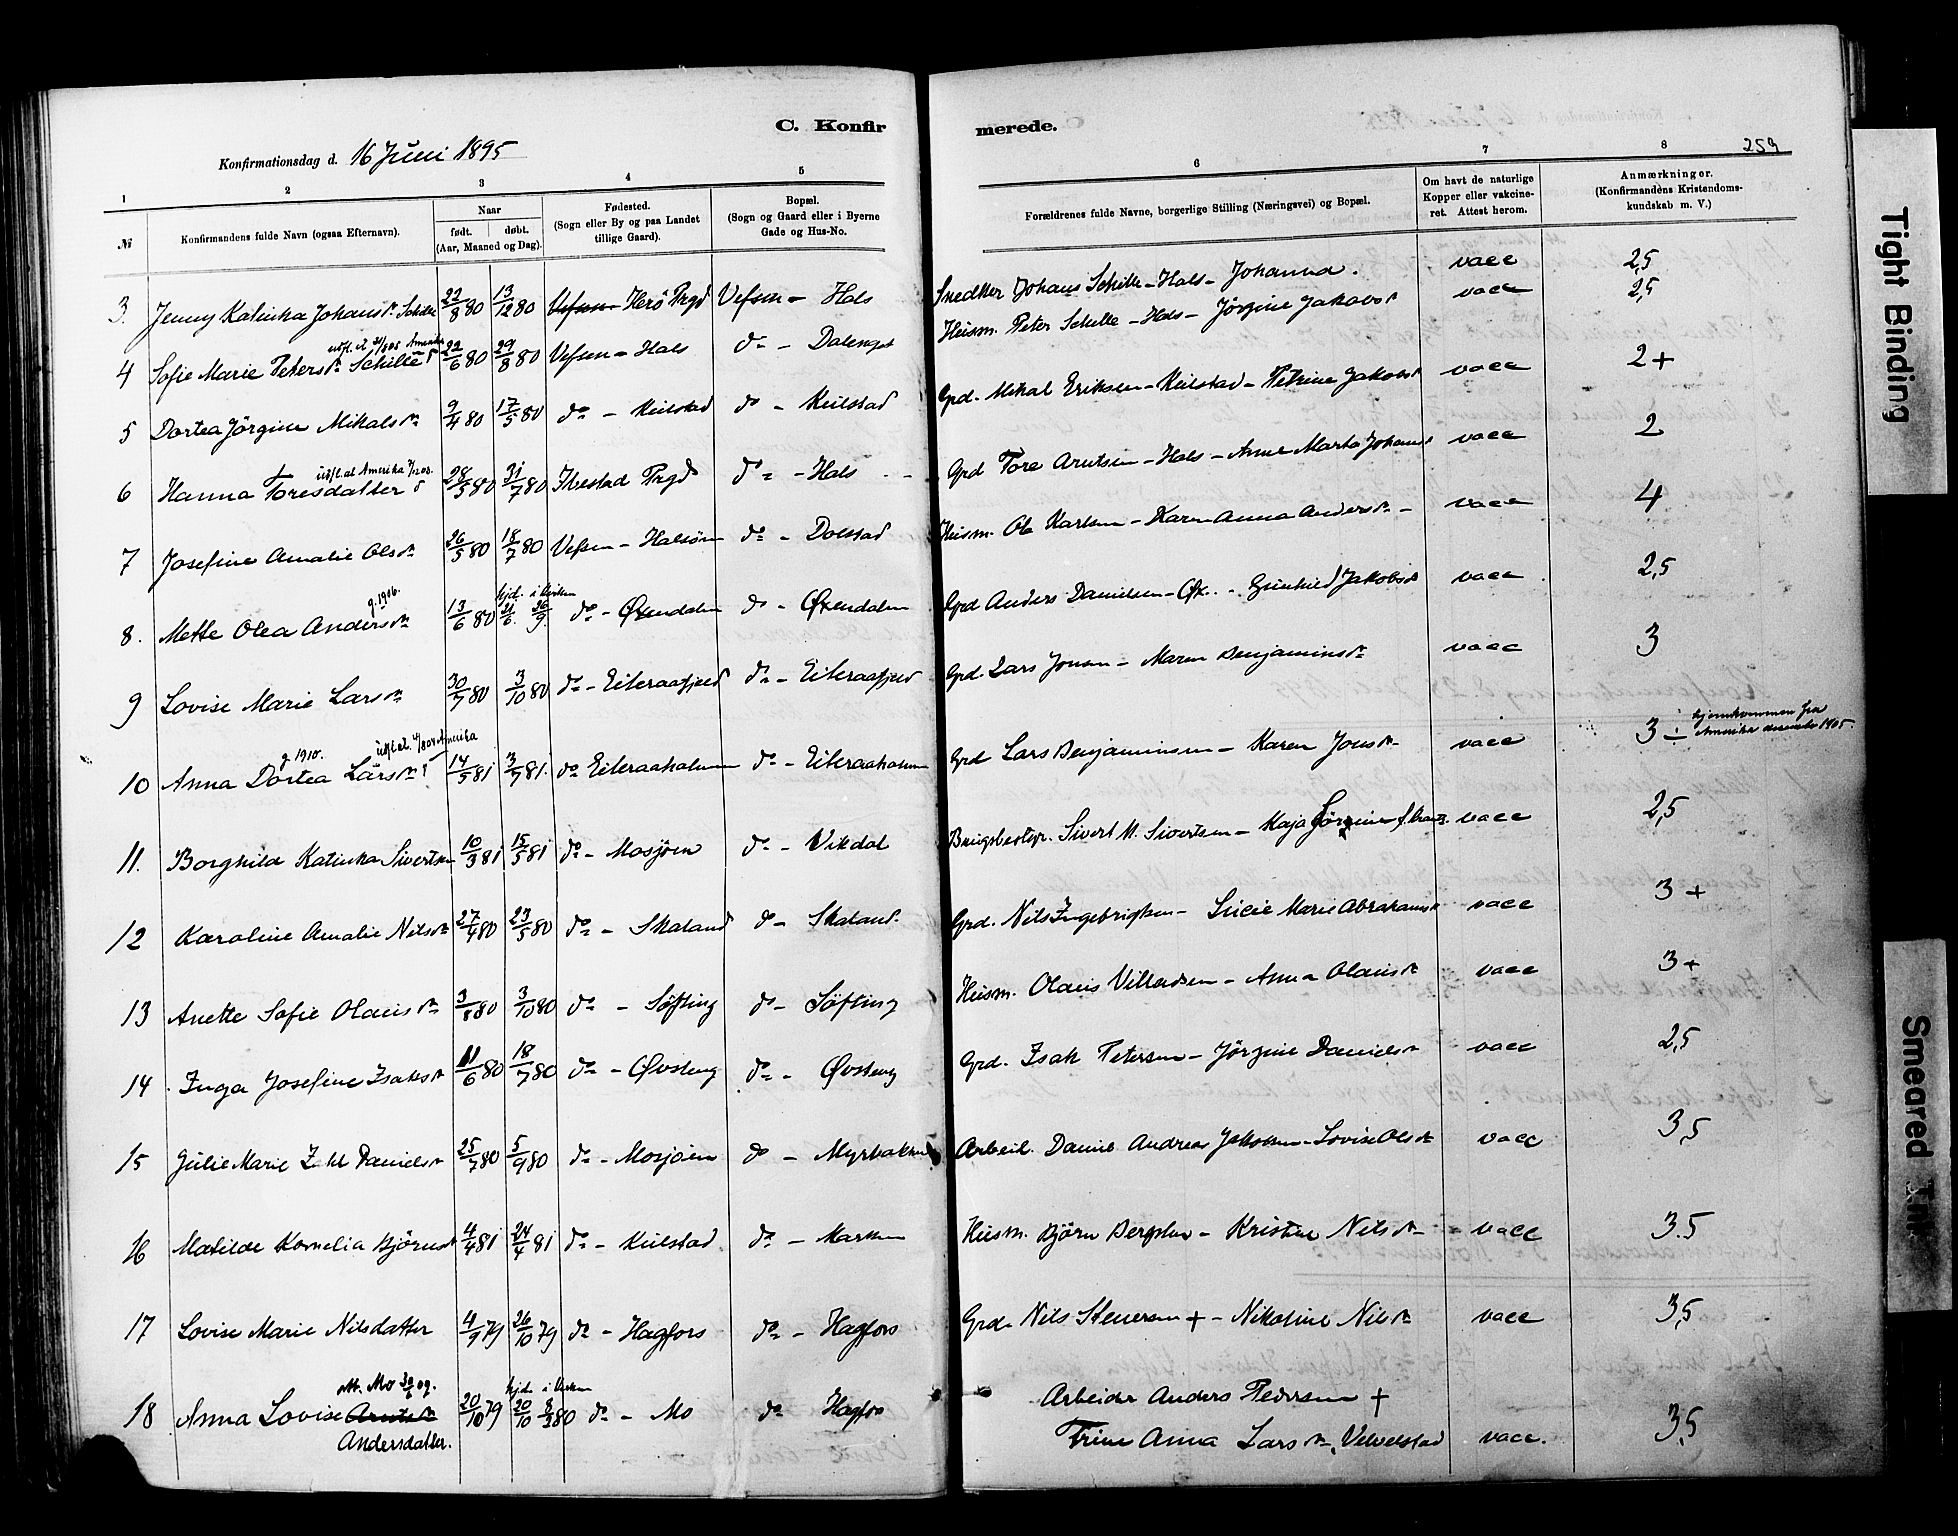 C. Konfir merede.
Konfirmationsdag d. 16 Juni 1895
259
1 2 3 4 5 6 7 8
№ Konfirmandens fulde Navn (ogsaa Efternavn). Naar født. døbt. (Aar, Maaned og Dag). Fødested. (Sogn eller By og paa Landet tillige Gaard). Bopæl. (Sogn og Gaard eller i Byerne Gade og Hus-No. Forældrenes fulde Navne, borgerlige Stilling (Næringsvei) og Bopæl. Om havt de naturlige Kopper eller vakcineret. Attest herom. Anmærkninger. (Konfirmandens Kristendomskundskab m. V.)
3. Jenny Katinka Johansdr Schille 22/8 80 13/12 80 Vefsen - Herö Prgd Vefsen - Hals Snedker Johans Schille - Hals - Johanna. vacc 2,5
Amerika
4 Sofie Marie Petersdr Schille 22/6 80 29/8 80 Vefsen - Hals do - Dalenget Husm. Peter Schille - Hals - Jörgine Jakobsdr vacc 2,5
5 Dortea Jörgine Mikalsdr 9/4 80 17/5 80 do - Kulstad do - Kulstad Grd. Mikal Eriksen - Kulstad - Petrine Jakobsdr vacc 2+
udfl. at Amerika
6 Hanna Toresdatter 28/5 80 31/7 80 Ibestad Prgd do - Hals Grd Tore Arntsen - Hals - Anne Marta Johansdr vacc 2
7 Josefine Amalie Olsdr 26/5 80 18/7 80 Vefsen - Halsöen do - Dolstad Husm. Ole Karlsen - Karen Anna Andersdr - vacc 4
g. 1906. hjd. i Kirken
8. Mette Olea Andersdr 13/6 80 21/6. 26/9. do - Øxendalen do - Øxendalen Grd Anders Danielsen - Øx. - Gunhild Jakobsdr vacc 2,5
9 Lovise Marie Larsdr 30/7 80 3/10 80 do - Eiteraafjeld do - Eiteraafjeld Grd. Lars Jonsen - Maren Benjaminsdr vacc 3
g. 1910. Amerika
hjemkommen fra
Amerika december 1905.
10 Anna Dortea Larsdr 14/5 81 3/7 81. do Eiteraaholmen do - Eiteraaholmen Grd Lars Benjaminsen - Karen Jonsdr vacc 3 ÷
11. Borghild Katinka Sivertsen 10/3 81 15/5 81 do - Mosjöen do - Vikdal Brugsbestyr. Sivert M. Sivertsen - Maja Jörgine vacc 2,5
12 Karoline Amalie Nilsdr 27/4 80 23/5 80 do - Skaland do - Skaland. Grd. Nils Ingebrigtsen - Lucie Marie Abrahamsdr vacc 3 +
13 Anette Sofie Olausdr 3/8 80 3/10 80 do - Söfting do - Söfting Husm. Olaus Villadsen - Anna Olausdr vacc 3 +
14 Inga Josefine Isaksdr 11/6 80 18/7 80 do - Øvsteng do - Øvsteng Grd. Isak Petersen - Jörgine Danielsdr vacc 2,5
15 Julie Marie Zahl Danielsdr 25/7 80 5/9 80 do - Mosjöen do - Myrbakken Arbeid. Daniel Andreas Jakobsen - Lovise Olsdr vacc 3,5
16 Matilde Kornelia Björnsdr 4/4 81 24/4 81 do - Kulstad do - Marken Husm. Björn Bergsen - Kristine Nilsdr - vacc 3.5
17 Lovise Marie Nilsdatter 4/9 79 26/10 79 do - Hagfors do - Hagfors Grd. Nils Stenersen + - Nikoline Nilsdr vacc 3,5
Mo 09. hjd. i Kirken
18 Anna Lovise Arntsdr 20/10 79 20/10 8/3 80 do - Mo do Hagfors Arbeider Anders Pedersen +
Andersdatter. Trine Anna Larsdr, Velvelstad vacc. 3,5
Tight Binding
Smeared Ink